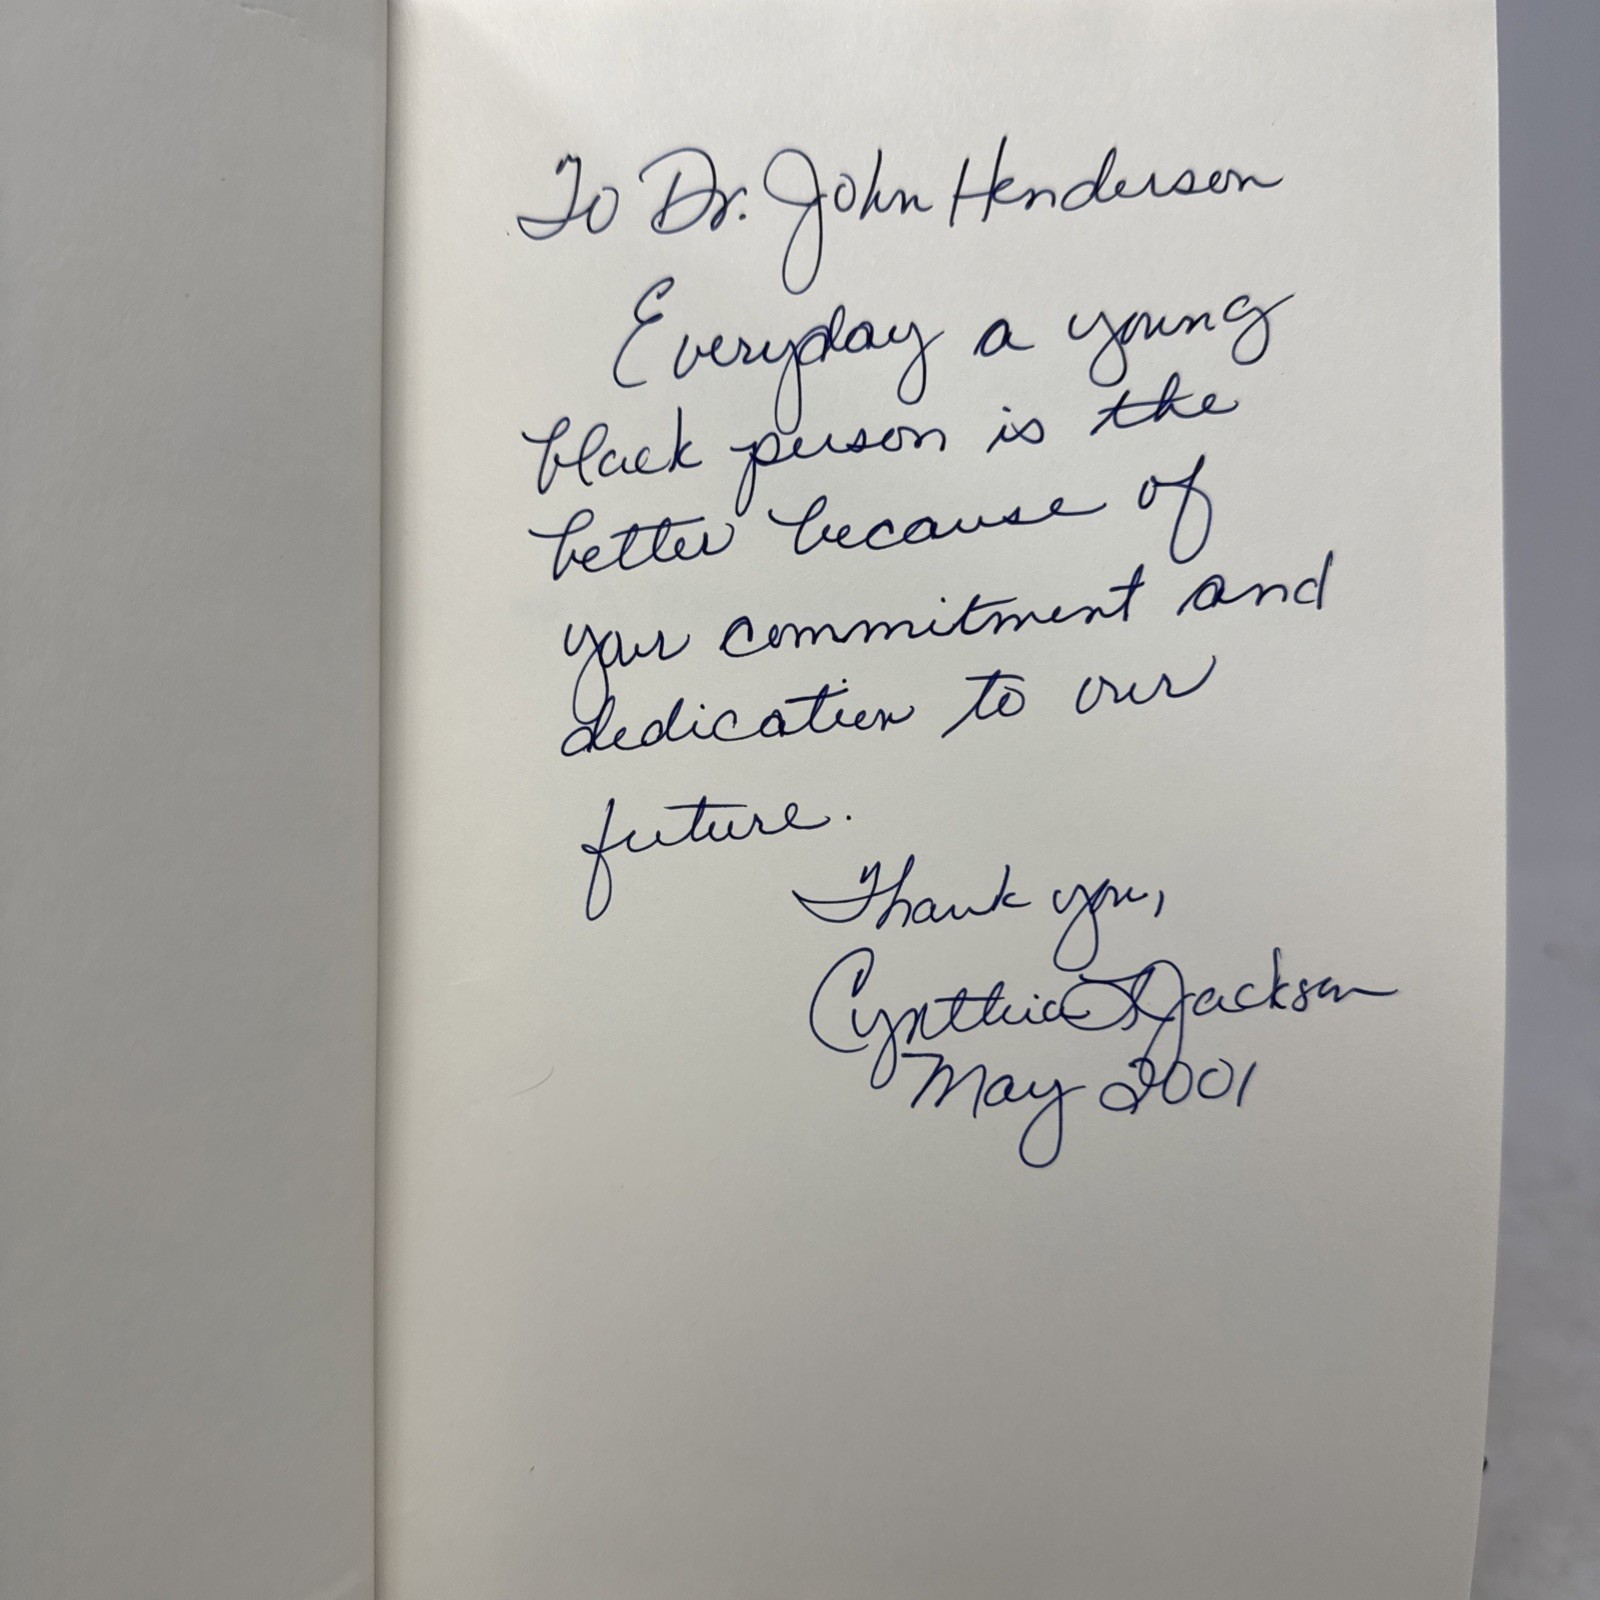 To Dr. John Henderson
Everyday a young
black person is the
better because of
your commitment and
dedication to our
future.
Thank you,
Cynthia L Jackson
May 2001